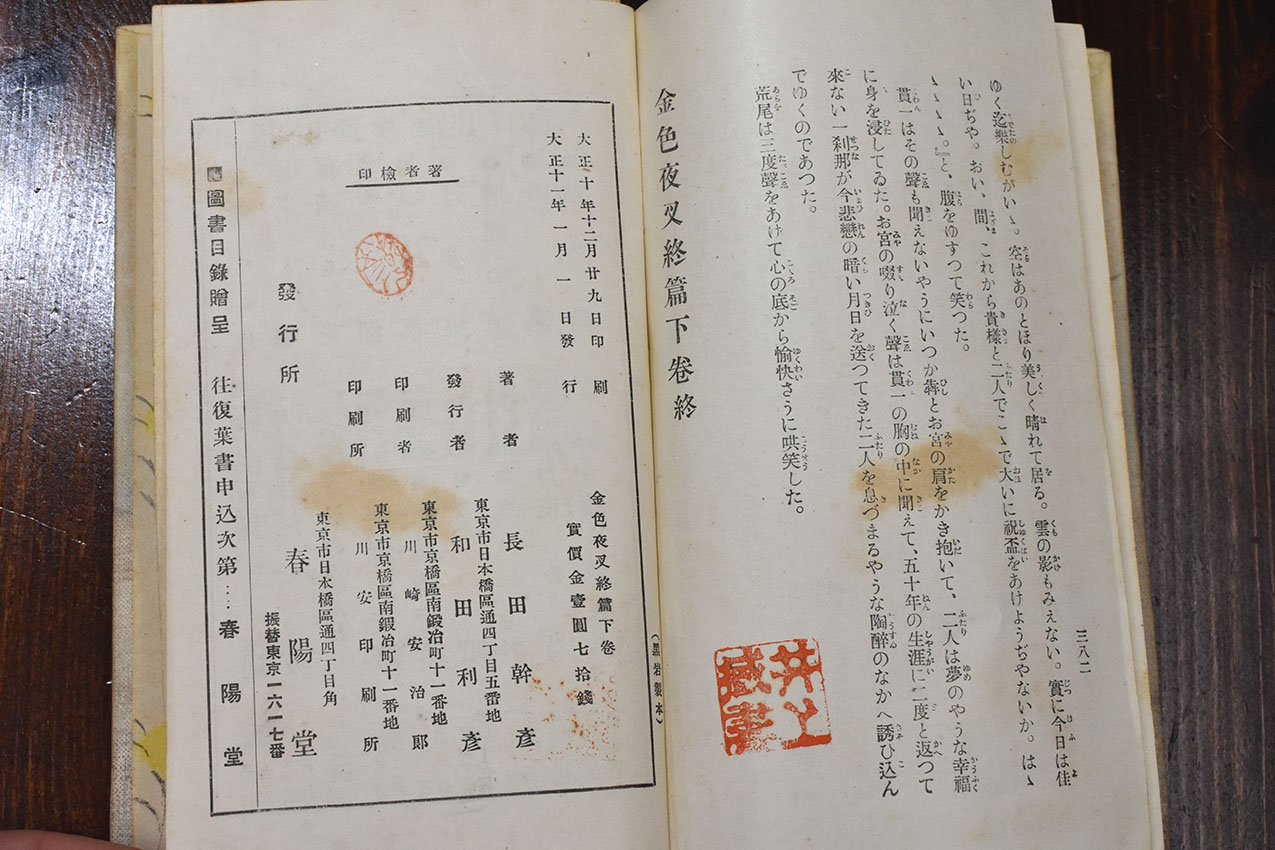 三八二
ゆく迄樂しむがいゝ。空はあのとほり美しく晴れて居る。雲の影もみえない。實に今日は佳
い日ぢや。おい、間、これから貴樣と二人でこゝで大いに祝盃をあげようぢやないか。はゝ
ゝゝゝ。』と、腹をゆすつて笑つた。
貫一はその聲も聞えないやうにいつか犇とお宮の肩をかき抱いて、二人は夢のやうな幸福
に身を浸してゐた。お宮の啜り泣く聲は貫一の胸の中に聞えて、五十年の生涯に二度と返つて
來ない一刹那が今悲戀の暗い月日を送つてきた二人を息づまるやうな陶醉のなかへ誘ひ込ん
でゆくのであつた。
荒尾は三度聲をあげて心の底から愉快さうに哄笑した。
金色夜叉終篇下卷終
大正十年十二月廿九日印刷
大正十一年一月一日發行
著者檢印
金色夜叉終篇下卷
實價金壹圓七拾錢
著者 長田幹彥
東京市日本橋區通四丁目五番地
發行者 和田利彥
東京市京橋區南鍛冶町十一番地
印刷者 川崎安治郎
東京市京橋區南鍛冶町十一番地
印刷所 川安印刷所
發行所
東京市日本橋區通四丁目角
春陽堂
振替東京一六一七番
圖書目錄贈呈 往復葉書申込次第…春陽堂
(黑岩製本)